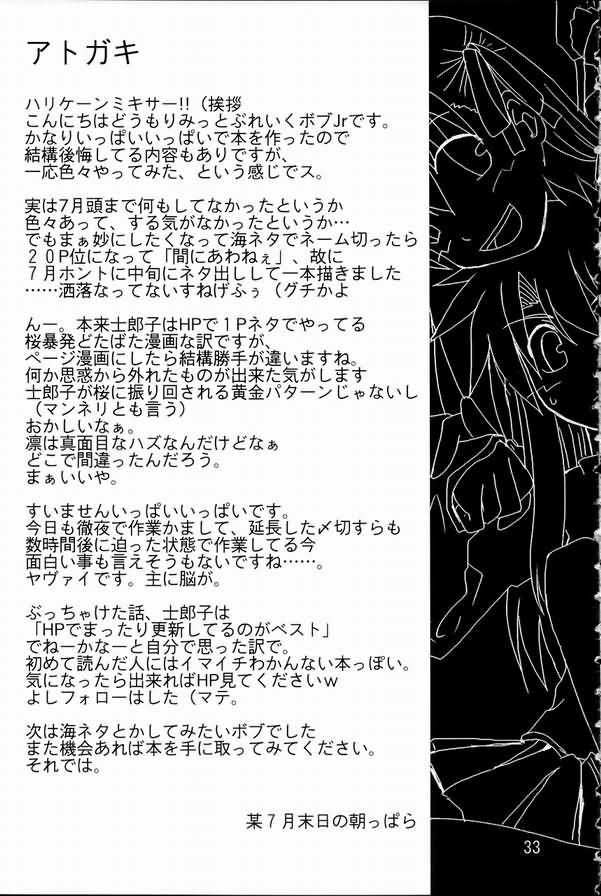 アトガキ
ハリケーンミキサー!!（挨拶
こんにちはどうもりみっとぶれいくボブJrです。
かなりいっぱいいっぱいで本を作ったので
結構後悔してる内容もありですが、
一応色々やってみた、という感じでス。
実は7月頭まで何もしてなかったというか
色々あって、する気がなかったというか…
でもまぁ妙にしたくなって海ネタでネーム切ったら
２０P位になって「間にあわねぇ」、故に
７月ホントに中旬にネタ出しして一本描きました
……洒落なってないすねげふぅ（グチかよ
んー。本来士郎子はHPで１Pネタでやってる
桜暴発どたばた漫画な訳ですが、
ページ漫画にしたら結構勝手が違いますね。
何か思惑から外れたものが出来た気がします
士郎子が桜に振り回される黄金パターンじゃないし
（マンネリとも言う）
おかしいなぁ。
凛は真面目なハズなんだけどなぁ
どこで間違ったんだろう。
まぁいいや。
すいませんいっぱいいっぱいです。
今日も徹夜で作業かまして、延長した〆切すらも
数時間後に迫った状態で作業してる今
面白い事も言えそうもないですね……。
ヤヴァイです。主に脳が。
ぶっちゃけた話、士郎子は
「HPでまったり更新してるのがベスト」
でねーかなーと自分で思った訳で。
初めて読んだ人にはイマイチわかんない本っぽい。
気になったら出来ればHP見てくださいｗ
よしフォローはした（マテ。
次は海ネタとかしてみたいボブでした
また機会あれば本を手に取ってみてください。
それでは。
某７月末日の朝っぱら
33